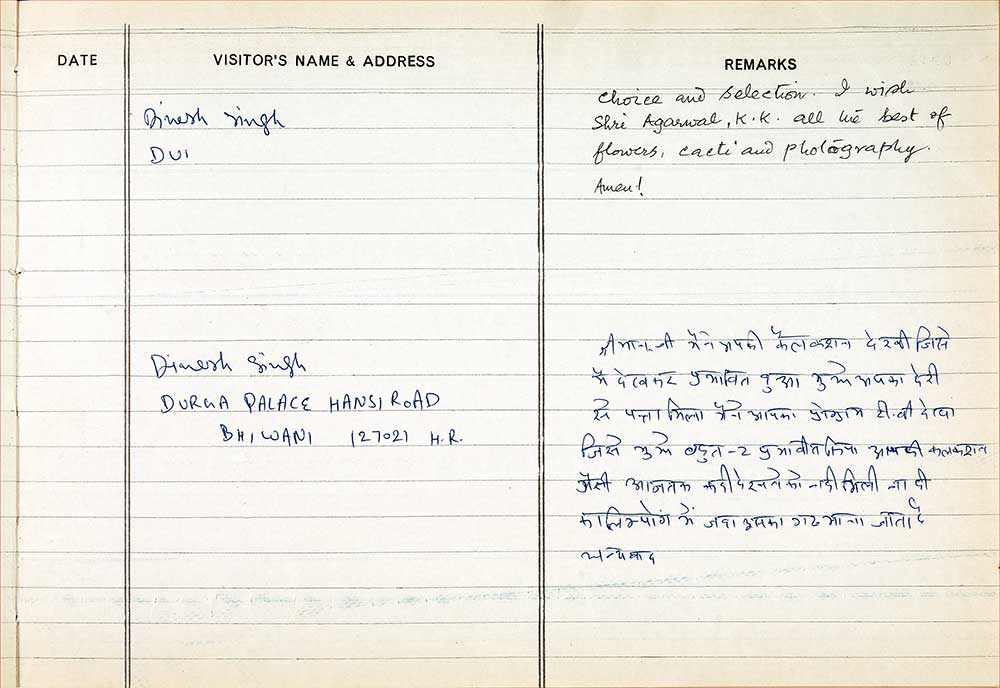 DATE VISITOR'S NAME & ADDRESS REMARKS
Dinesh Singh
DUI
choice and selection. I wish
Shri Agarwal, K.K. all the best of
flowers, cacti and photography.
Amen!
Dinesh Singh
DURGA PALACE HANSI ROAD
BHIWANI 127021 H.R.
श्रीमानजी मैने आपकी कैलकशन देखी जिसे
मै देखकर प्रभावित हुआ मुझे आपका देरी
से पता मिला मैने आपका प्रोग्राम टी.वी देखा
जिसे मुझे बहुत-2 प्रभावीत किया आपकी कलकशन
जैसी आजतक कही देखने को नही मिली ना ही
कालिम्पोंग में जहा इसका गढ माना जाता है
धन्यवाद